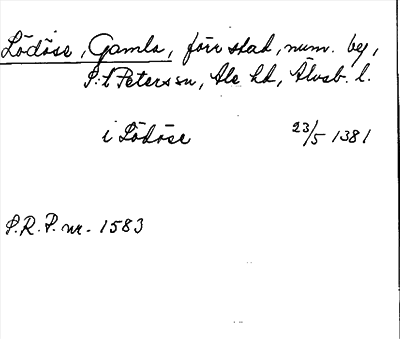 Lödöse, Gamla, förr stad, num. by,
S:t Peters sn, Ale hd, Älvsb. l.
i Lödöse 23/5 1381
S.R.P. nr. 1583